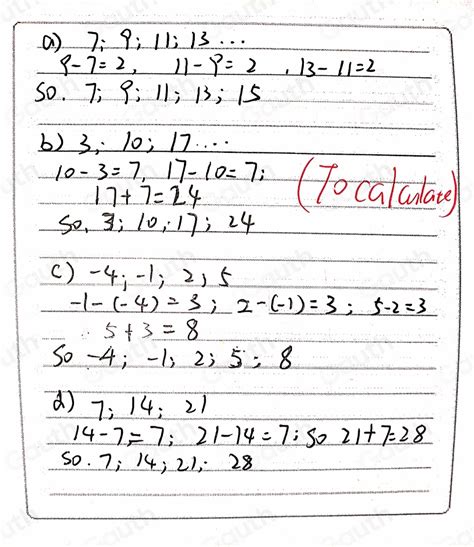 a) 7; 9; 11; 13 ...
9-7=2, 11-9=2, 13-11=2
So. 7; 9; 11; 13; 15
b) 3; 10; 17 ....
10-3=7, 17-10=7;
17+7=24
(To calculate)
So, 3; 10; 17; 24
c) -4; -1; 2; 5
-1-(-4)=3; 2-(-1)=3; 5-2=3
5+3=8
So -4; -1; 2; 5; 8
d) 7; 14; 21
14-7=7; 21-14=7; so 21+7=28
So. 7; 14; 21; 28